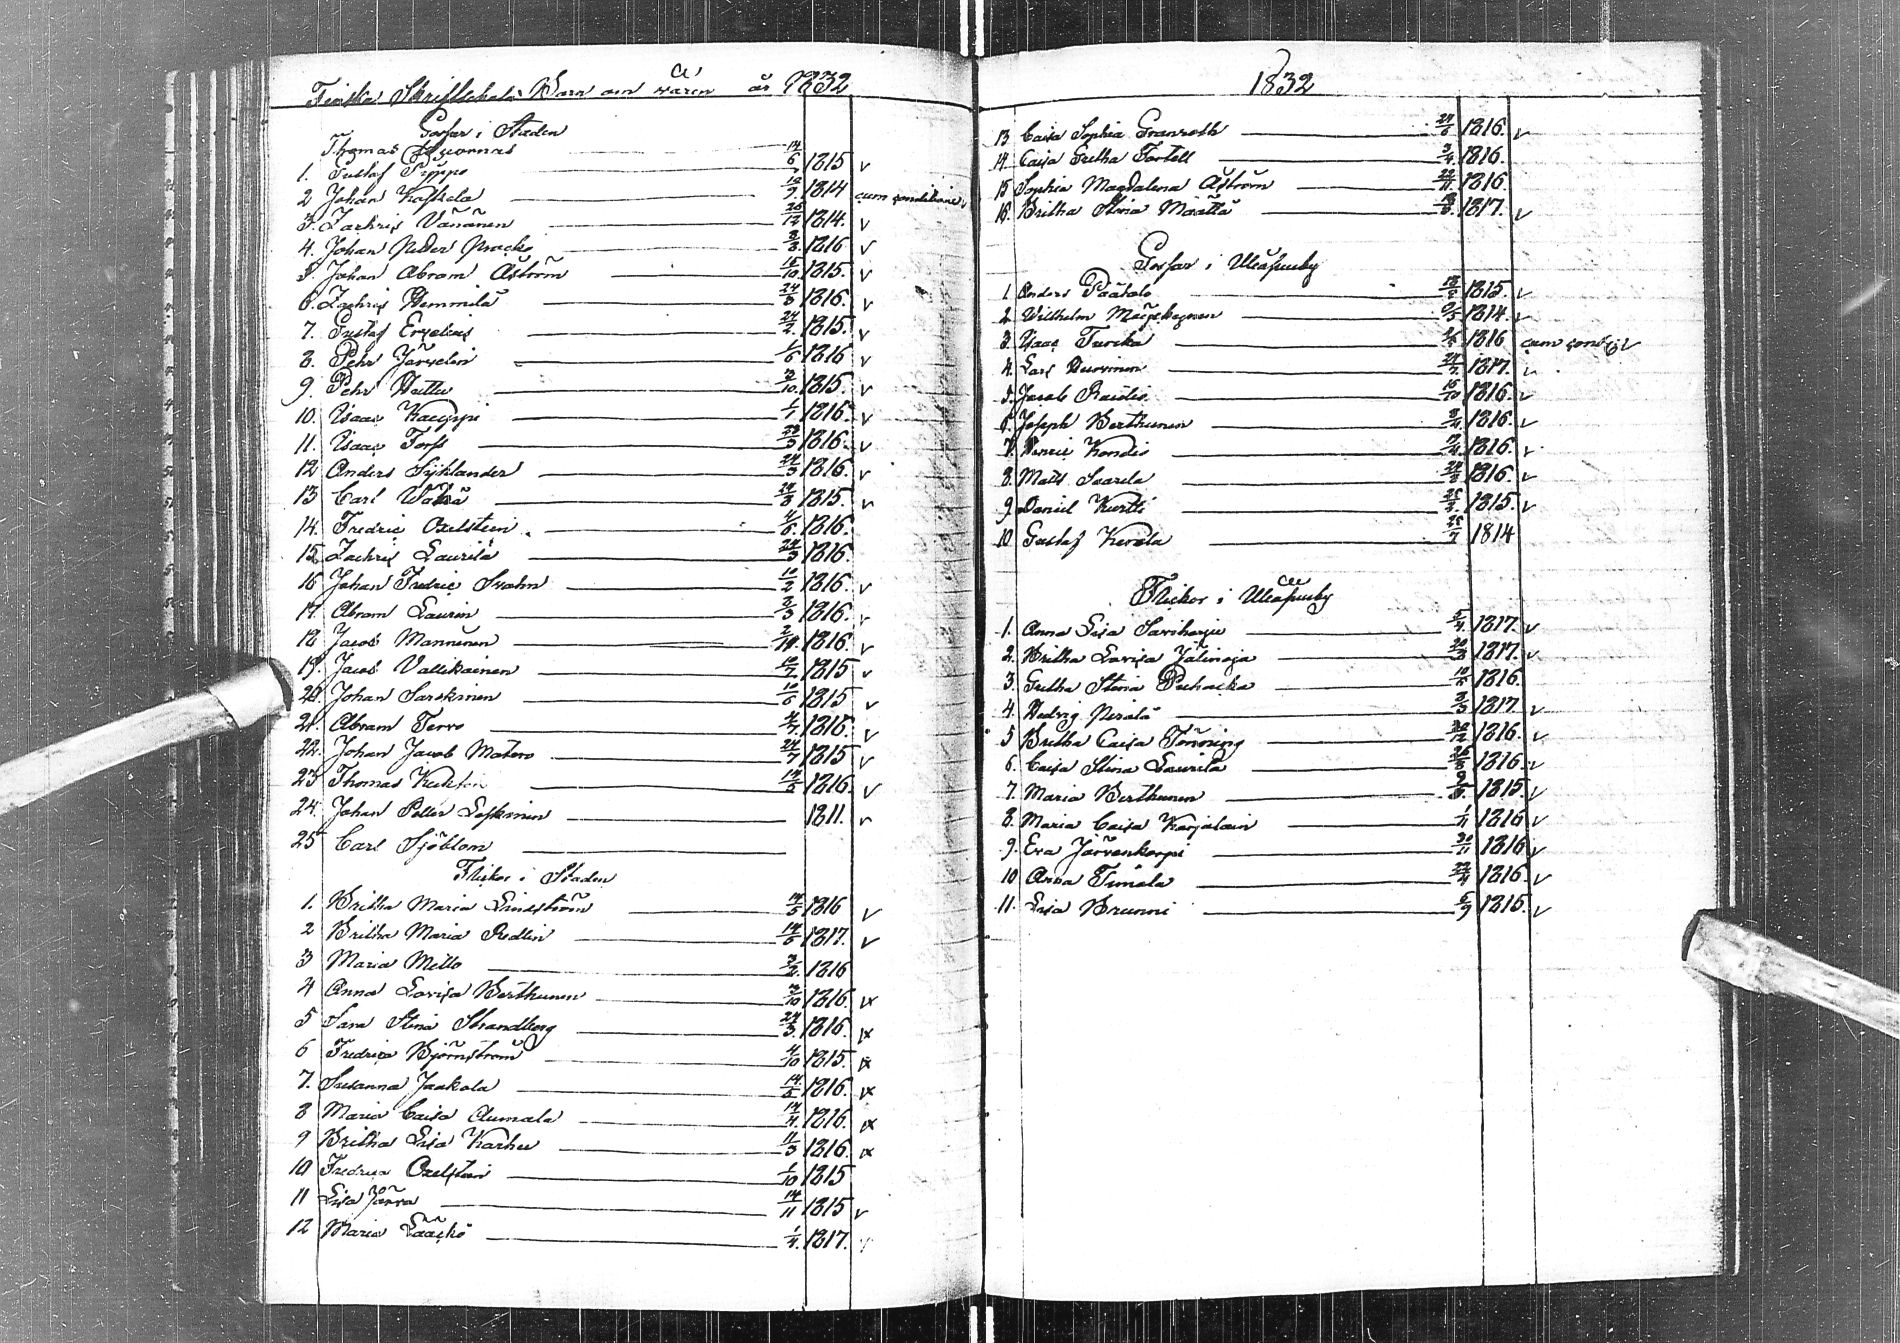 Finska Skriftskole Barn om våren år 1832
Gossar i Staden
Thomas
1. Gustaf Pyppo 14/6 1815 v
2 Johan Kaskela 10/9 1814 cum conditione v
3. Zachris Vänänen 26/12 1814. v
4. Johan Peder 8/8 1816 v
5. Johan Abram Åström 15/10 1815. v
6 Zachris Hemmilä 24/8 1816. v
7. Gustaf 24/2 1815. v
8. Pehr Järvelin 1/6 1816 v
9. Pehr 2/10 1815. v
10. Isaac 6/1 1816. v
11. Isaac Forss 28/3 1816. v
12 Anders 24/3 1816. v
13 Carl Wähä 24/8 1815. v
14. Fredric Oxelstein 4/6 1816.
15 Zachris Laurila 24/3 1816.
16 Johan Fredric Svahn 10/2 1816. v
17. Abram Laurin 2/3 1816. v
18 Jacob Manninen 1816. v
19. Jacob Vallikainen 1815 v
20. Johan 10/6 1815 v
21. Abram Tervo 1816. v
22. Johan Jacob Matero 24/7 1815 v
23 Thomas 1816. v
24. Johan Petter Leskinen 1811. v
25 Carl Sjöblom
Flickor i Staden
1. Britha Maria Lindström 14/5 1816 v
2 Britha Maria Redlin 14/6 1817. v
3 Maria Mello 3/2 1816
4 Anna Lovisa Berthunen 2/10 1816. x
5 Sara Stina Strandberg 24/3. 1816. x
6 Fredrica Björnström 4/10 1815. x
7. Susanna Jaakola 14/5 1816. x
8 Maria Caisa Aumala 14/4 1816. x
9 Britha Lisa Karhu 11/3 1816. x
10 Fredrica Oxelstein 1/10 1815
11 Lisa Järva 14/11 1815 v
12 Maria Lääskö 1/4. 1817.
1832
13 Caisa Sophia Granroth 24/6 1816. v
14 Caisa Gretha Fortell 3/4 1816.
15 Sophia Magdalena Åström 22/11 1816
16. Britha Stina Määttä 1817. v
Gossar i Uleåsuuby
1. Anders Päätalo 1815. v
2. Wilhelm 1814. v
3. Isaac Turcka 1816 cum condit. v
4. Lars 1817. v
5. Jacob 15/10 1816. v
6. Joseph Berthunen 8/4 1816. v
7. Henric Kondio 1816. v
8. Matts Saarela 24/8 1816. v
9. Daniel Kurtti 1815. v
10 Gustaf 25/7 1814
Flickor i Uleåsuuby
1. Anna Lisa Saviharju 5/4 1817. v
2. Britha Lovisa Jälinoja 20/3 1817. v
3. Gretha Stina Puhacka 10/5 1816.
4. Hedvig Perälä 2/3 1817. v
5 Britha Caisa Tönning 1816. v
6. Caisa Stina Laurila 26/8 1816. v
7. Maria Berthunen 1815. v
8. Maria Caisa Karjalain 1/11 1816 v
9. Eva Järvenkorpi 30/11 1816 v
10 Anna Timola 22/4 1816. v
11. Lisa Brunni 6/9 1815. v